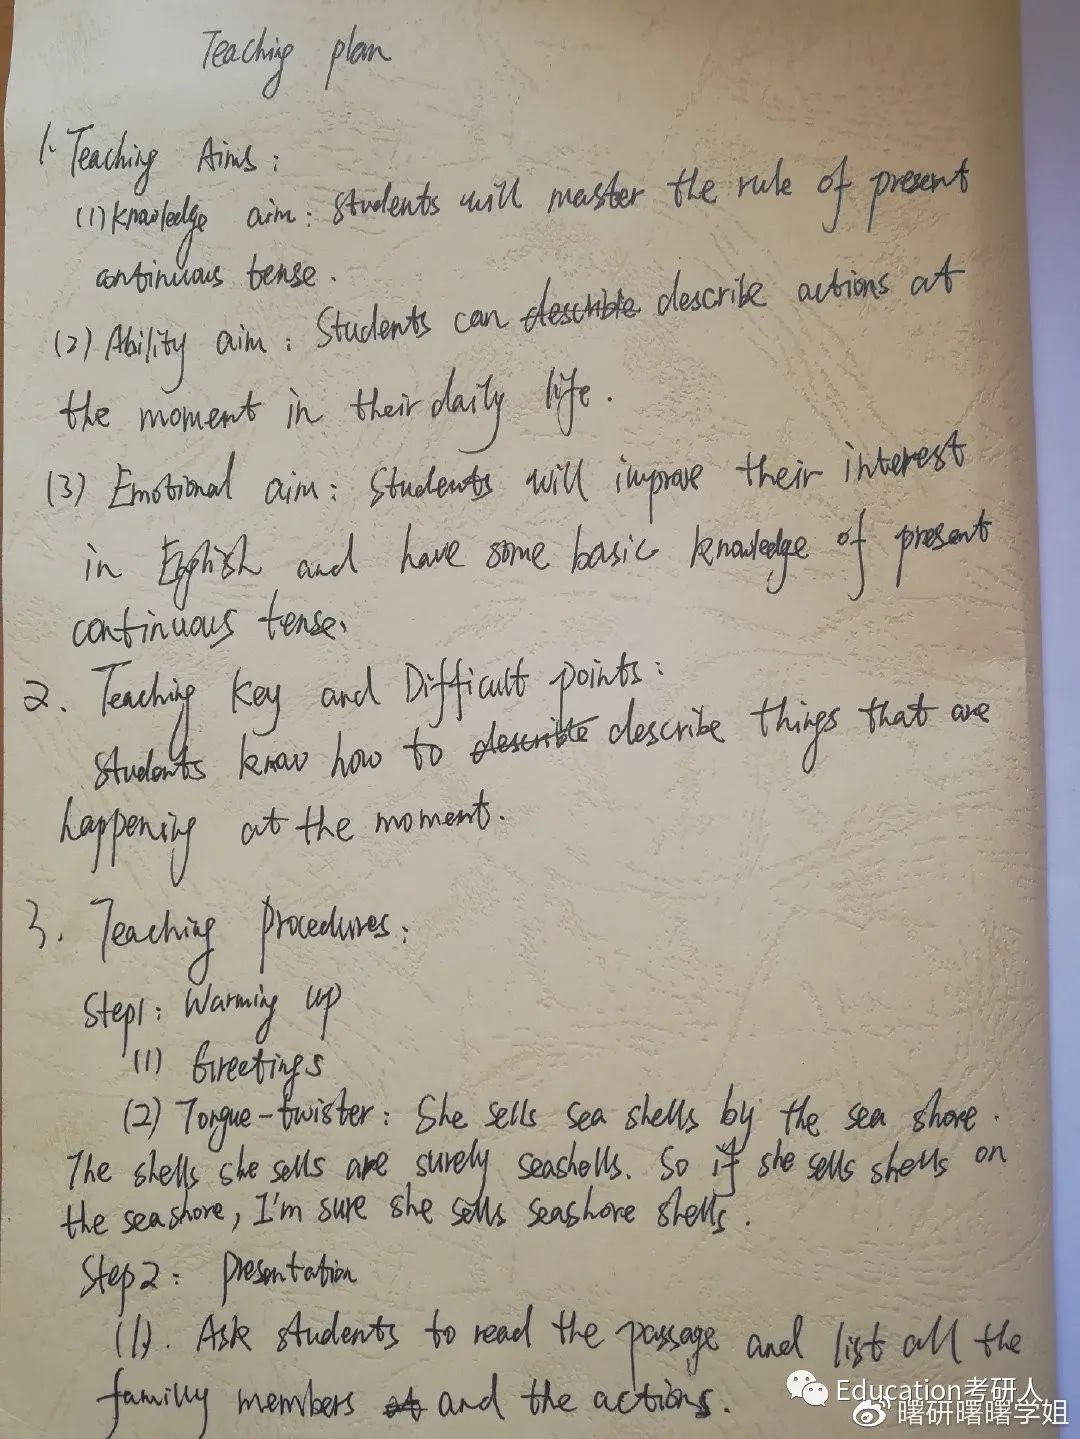 Teaching plan
1. Teaching Aims:
(1) Knowledge aim: Students will master the rule of present
continuous tense.
(2) Ability aim: Students can describle describe actions at
the moment in their daily life.
(3) Emotional aim: Students will improve their interest
in English and have some basic knowledge of present
continuous tense.
2. Teaching Key and Difficult points:
Students know how to describle describe things that are
happening at the moment.
3. Teaching Procedures:
Step1: Warming up
(1) Greetings
(2) Tongue-twister: She sells sea shells by the sea shore.
The shells she sells are surely seashells. So if she sells shells on
the seashore, I'm sure she sells seashore shells.
Step2: Presentation
(1). Ask students to read the passage and list all the
familly members at and the actions.
Education考研人
曙研曙曙学姐